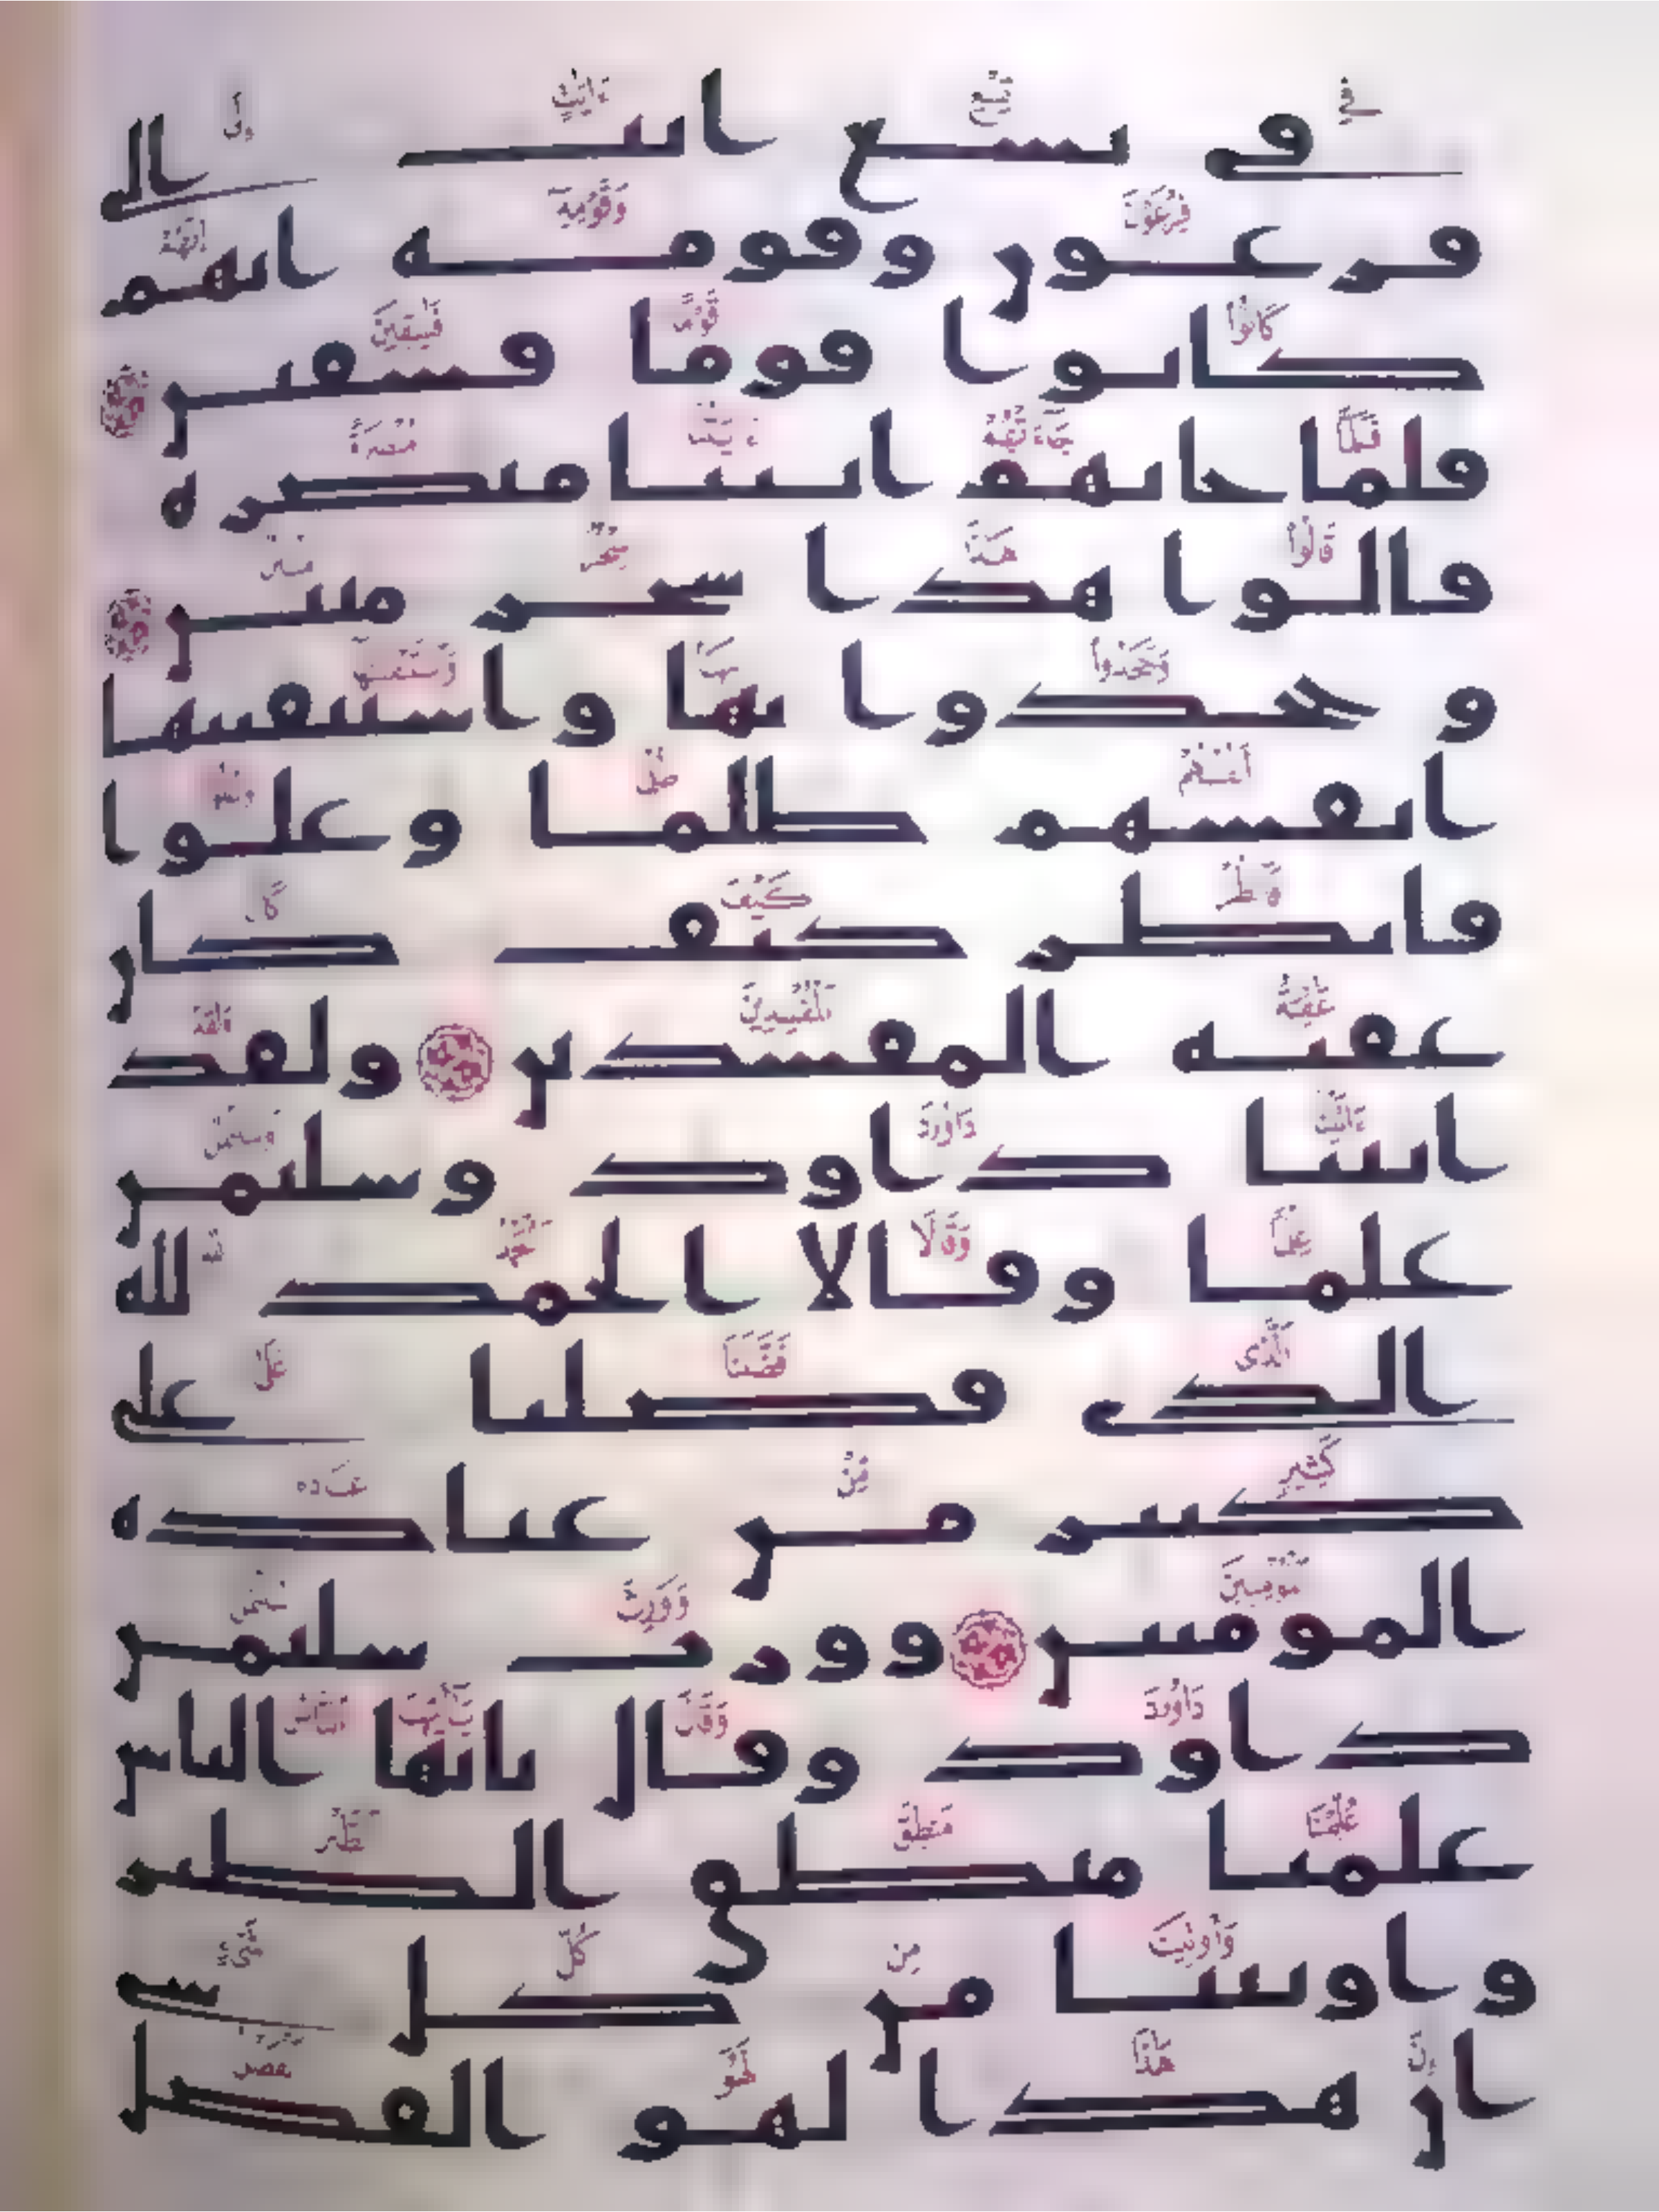 في تسع ايت الى
فرعون وقومه انهم
كانوا قوما فسقين
فلما جاتهم ايتنا مبصره
قالوا هذا سحر مبين
و جحدوا بها واستيقنتها
انفسهم ظلما وعلوا
فانظر كيف كان
عقبه المفسدين ولقد
اتينا داود وسليمن
علما وقالا الحمد لله
الذي فضلنا على
كثير من عباده
المومنين وورث سليمن
داود وقال يايها الناس
علمنا منطق الطير
واوتينا من كل شي
ان هذا لهو الفضل